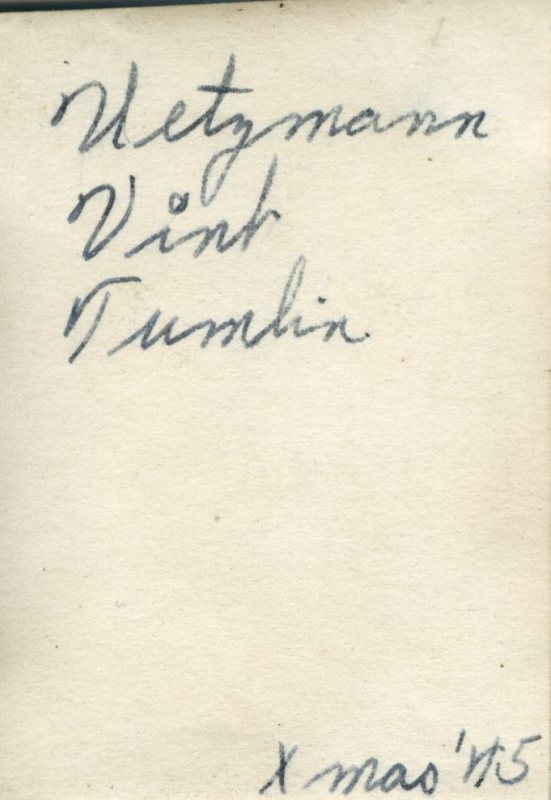 Uetzmann
Vink
Tumlin
Xmas '45